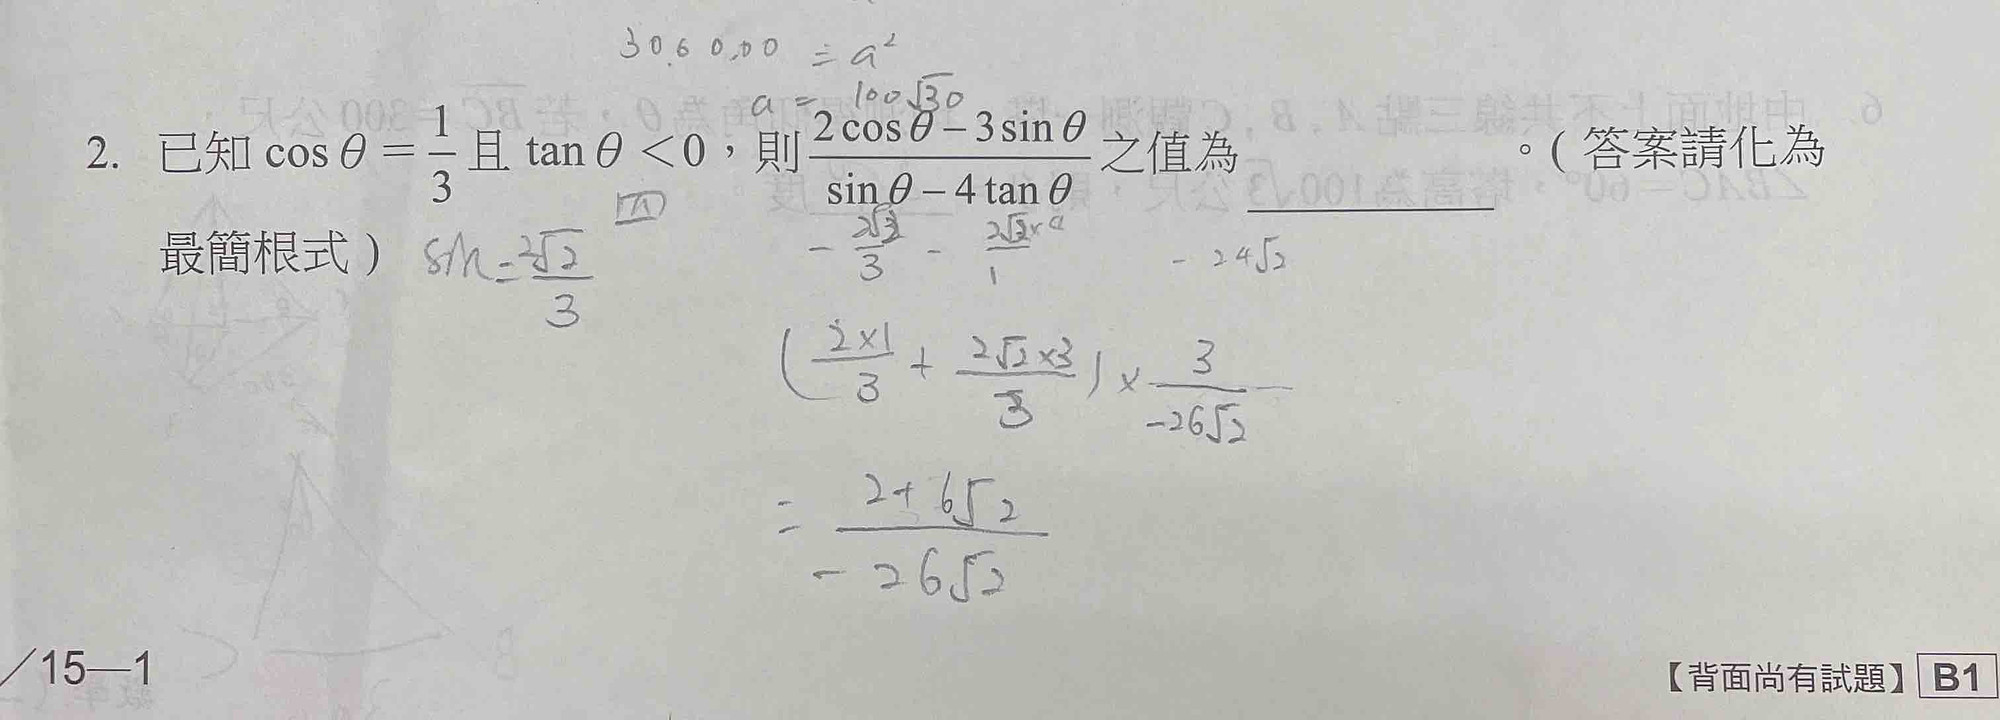 30,60,00 = a²
a = 100√30
2. 已知 cos θ = 1/3 且 tan θ < 0，則 (2 cos θ − 3 sin θ)/(sin θ − 4 tan θ) 之值為 ________。( 答案請化為
最簡根式 )
sin = 2√2/3
- 24√2
(2×1/3 + 2√2×3/3) × 3/-26√2
= 2+6√2/-26√2
/15—1
【背面尚有試題】 B1